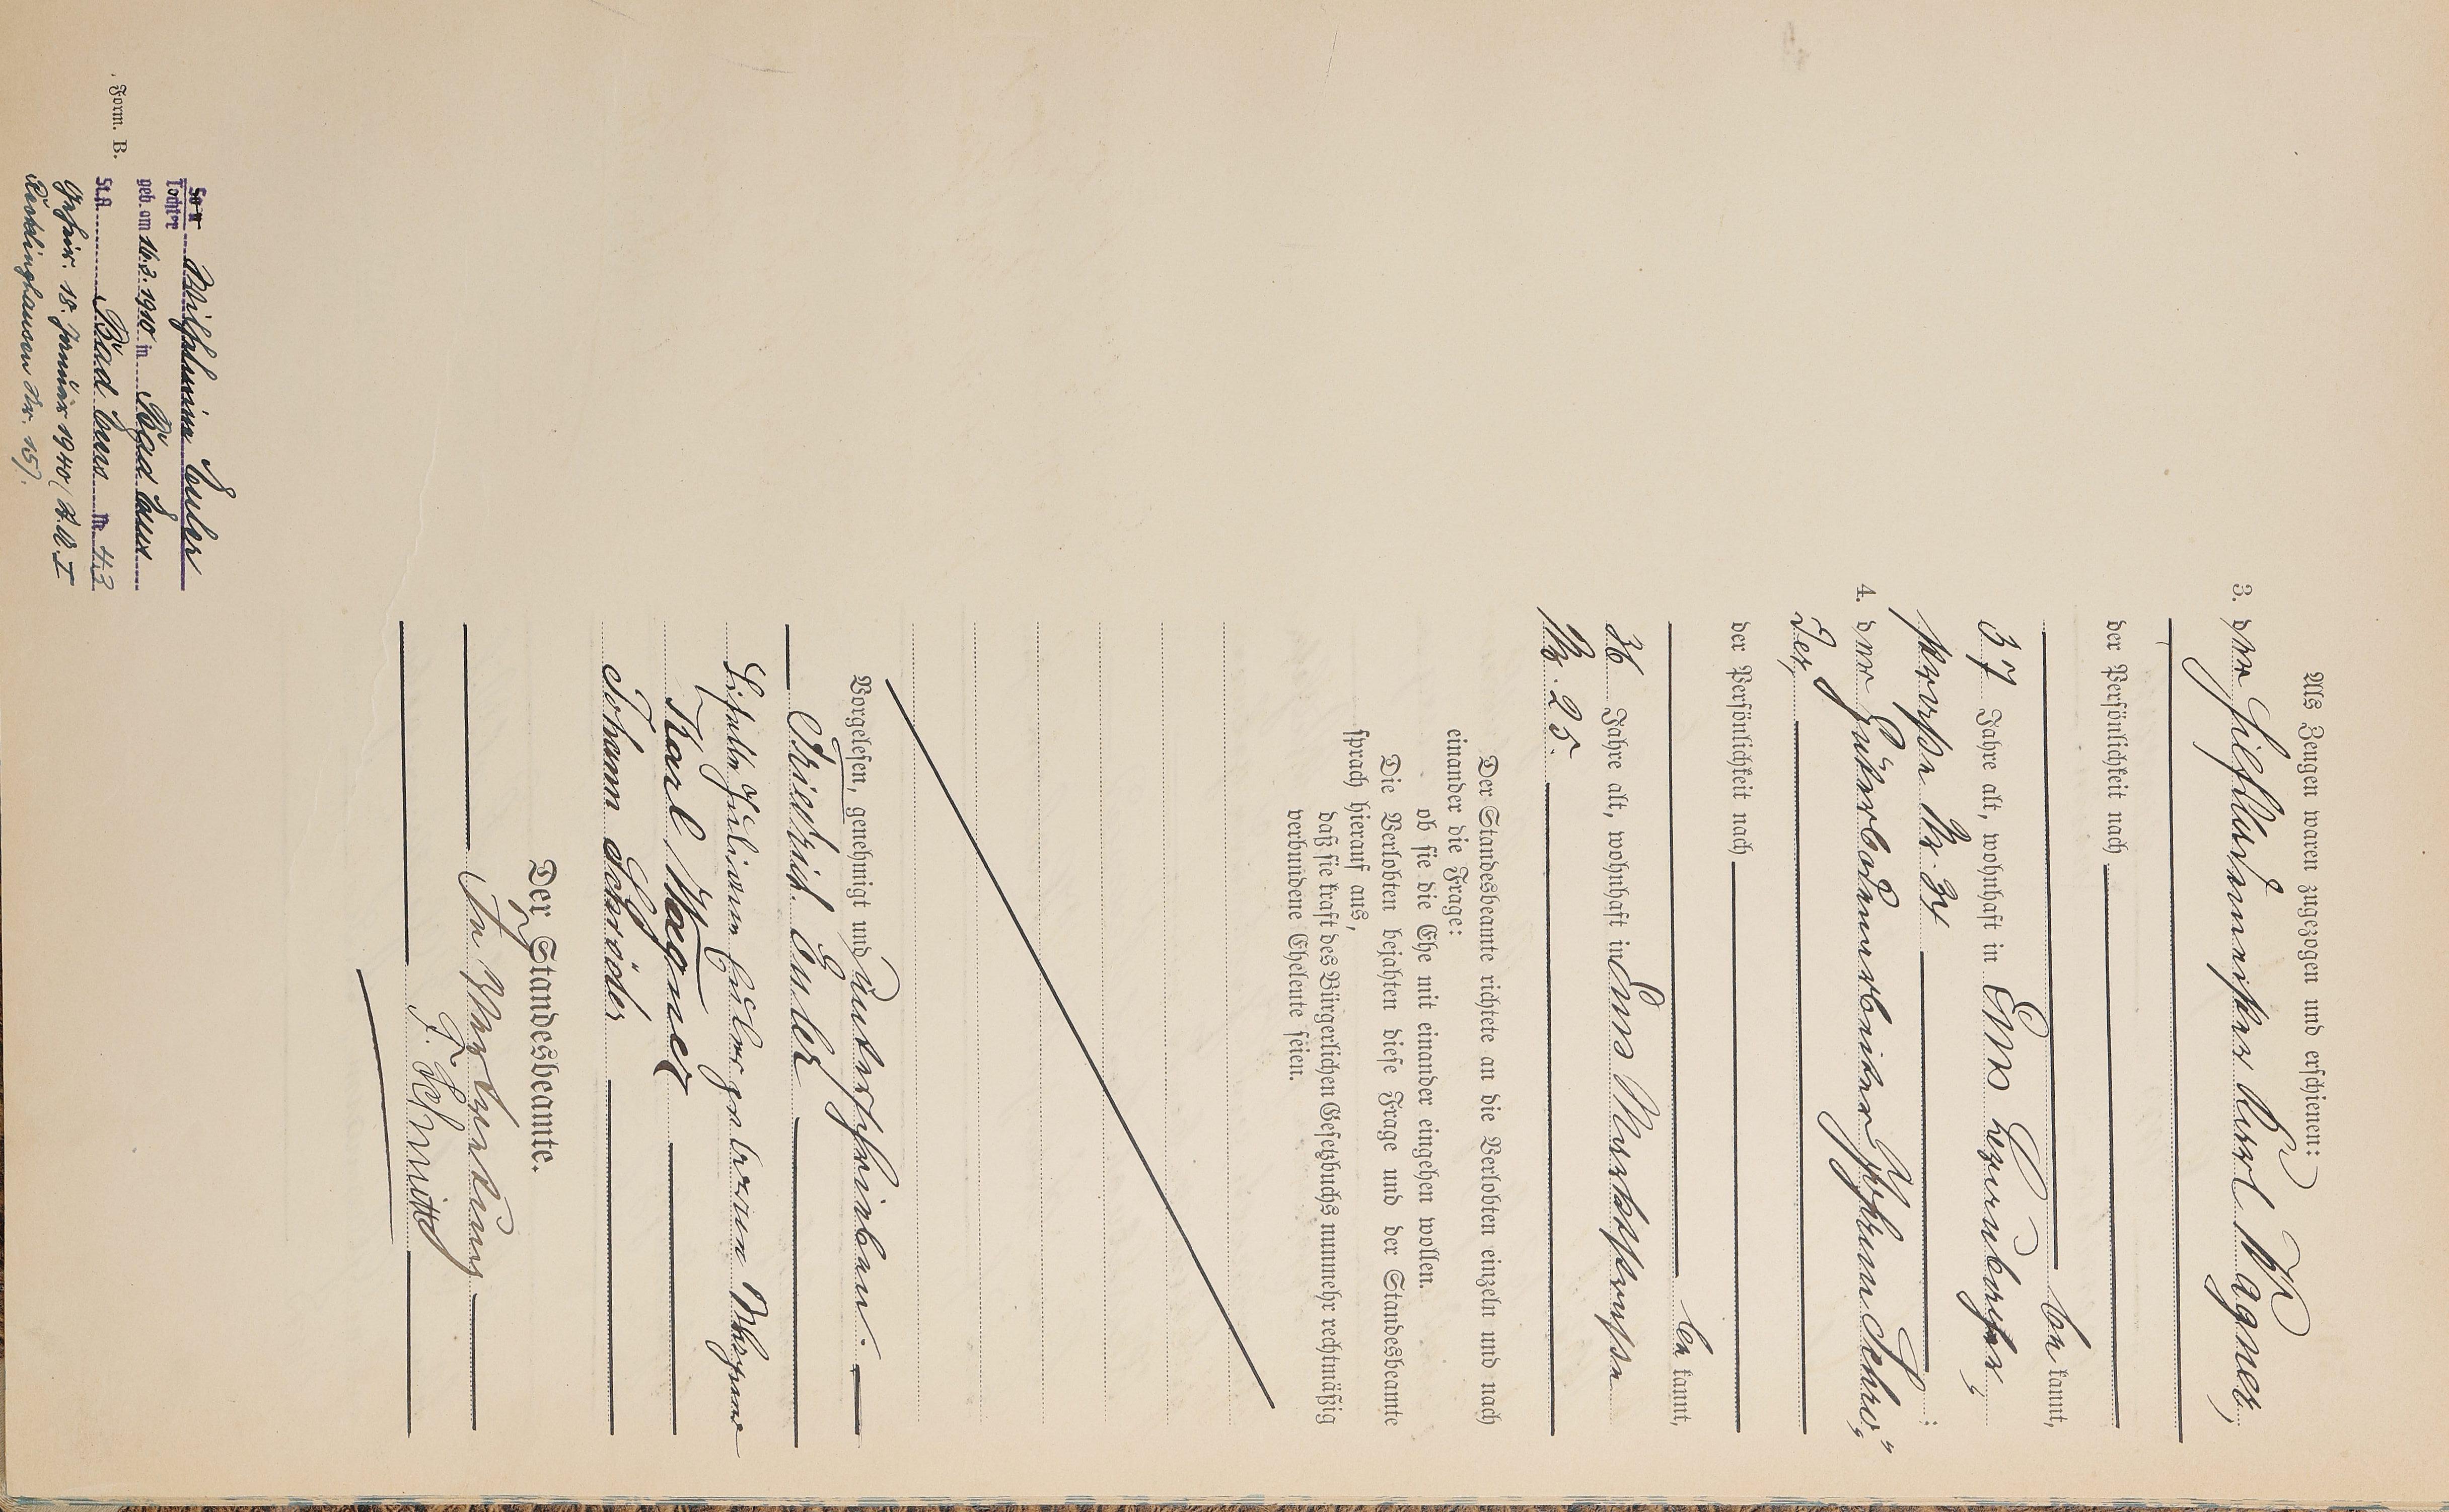 Als Zeugen waren zugezogen und erschienen:
3. der Karl Wagner,
der Persönlichkeit nach
be kannt,
37 Jahre alt, wohnhaft in Ems
straße Nr. 34 ;
4. der Güterbodenarbeiter Johann Schrö„
der,
der Persönlichkeit nach
be kannt,
36 Jahre alt, wohnhaft in Ems Marktstraße
Nr. 25.
Der Standesbeamte richtete an die Verlobten einzeln und nach
einander die Frage:
ob sie die Ehe mit einander eingehen wollen.
Die Verlobten bejahten diese Frage und der Standesbeamte
sprach hierauf aus,
daß sie kraft des Bürgerlichen Gesetzbuchs nunmehr rechtmäßig
verbundene Eheleute seien.
Vorgelesen, genehmigt und unterschrieben.
Friedrich Euler
Juliane Euler geborene
Karl Wagner
Johann Schröder
Der Standesbeamte.
In Vertretung
F. Schmitt
Form. B.
Sohn
Tochter Wilhelmine Euler
geb. am 16.3.1910 in Bad Ems
St.A. Bad Ems Nr. 43
Geheir. 18. Januar 1940 (St.A. I
Recklinghausen Nr. 15).